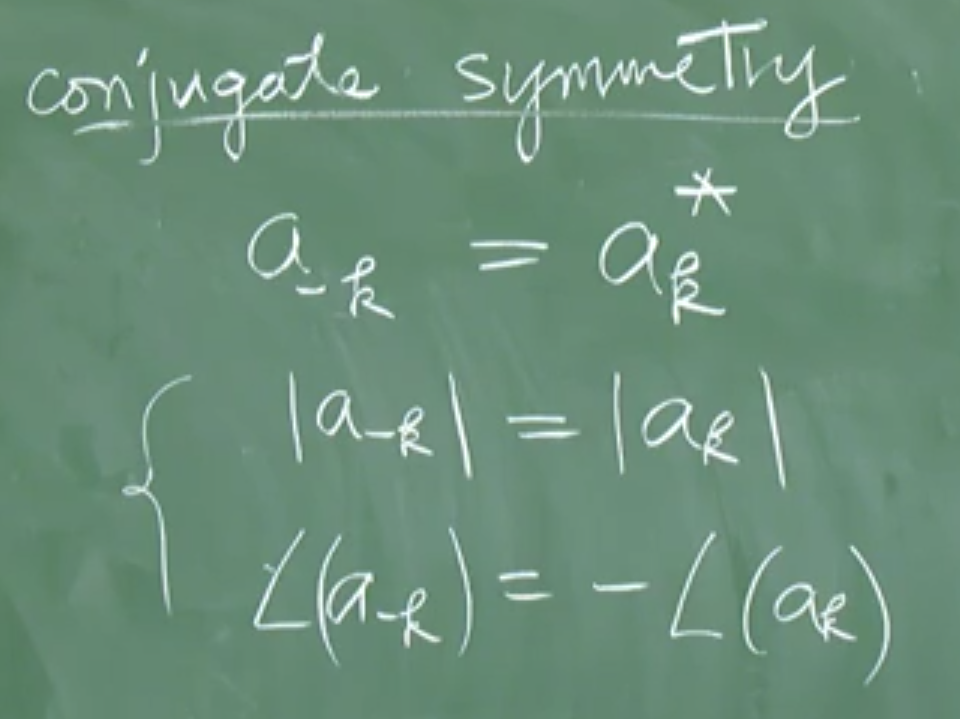 conjugate symmetry
a₋ₖ = aₖ*
|a₋ₖ| = |aₖ|
∠(a₋ₖ) = - ∠(aₖ)